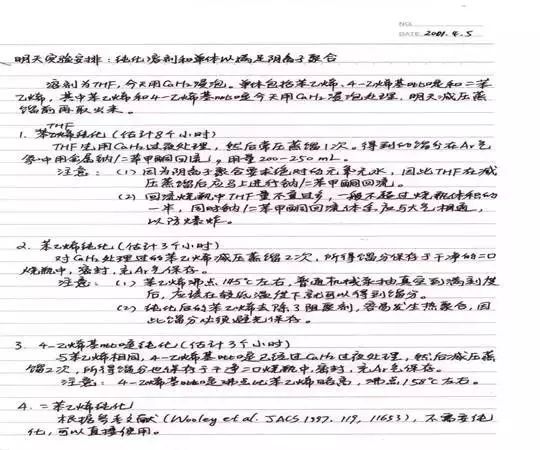 NO.
DATE 2001.4.5
明天实验安排：纯化溶剂和单体以满足阴离子聚合
溶剂为THF，今天用CaH₂浸泡。单体包括苯乙烯、4-乙烯基吡啶和二苯
乙烯，其中苯乙烯和4-乙烯基吡啶今天用CaH₂浸泡处理，明天减压蒸
馏前再取出来。
1. THF纯化（估计8个小时）
THF先用CaH₂过夜处理，然后常压蒸馏1次。得到的馏分在Ar气
氛中用金属钠/二苯甲酮回流，用量200-250 mL。
注意：（1）因为阴离子聚合要求绝对的无氧无水，因此THF在减
压蒸馏后应马上进行钠/二苯甲酮回流。
（2）回流烧瓶中THF量不宜过多，一般不超过烧瓶体积的
一半，同时钠/二苯甲酮回流体系应与大气相通，
以防爆炸。
2. 苯乙烯纯化（估计3个小时）
对CaH₂处理过的苯乙烯减压蒸馏2次，所得馏分保存于干净的二口
烧瓶中，密封，充Ar气保存。
注意：（1）苯乙烯沸点145℃左右，普通机械泵抽真空到满刻度
后，应该在较低温度下就可以得到馏分。
（2）纯化后的苯乙烯去除了阻聚剂，容易发生热聚合，因
此馏分必须避光保存。
3. 4-乙烯基吡啶纯化（估计3个小时）
与苯乙烯相同，4-乙烯基吡啶已经过CaH₂过夜处理，然后减压蒸
馏2次，所得馏分也保存于干净二口烧瓶中，密封，充Ar气保存。
注意：4-乙烯基吡啶沸点比苯乙烯略高，沸点158℃左右。
4. 二苯乙烯纯化
根据参考文献（Wooley et al. JACS 1997, 119, 11653），不需要纯
化，可以直接使用。